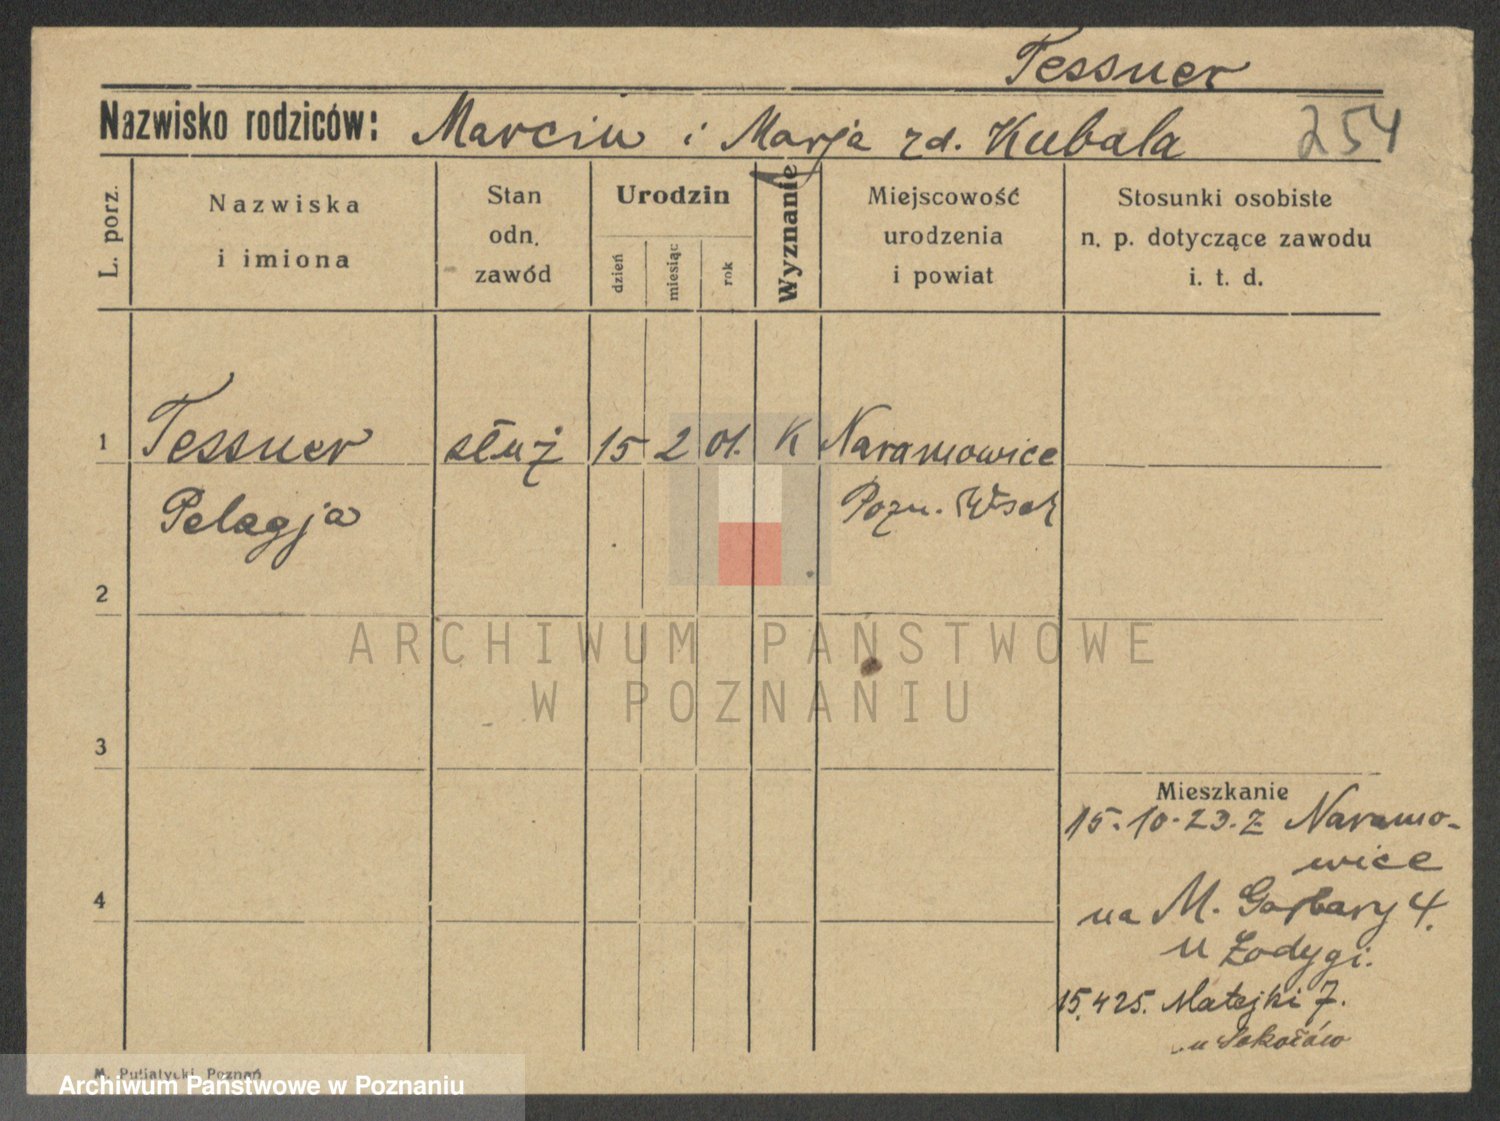 Tessner
Nazwisko rodziców: Marcin i Marja zd. Kubala 254
L. porz.
Nazwiska
i imiona
Stan
odn.
zawód
Urodzin
dzień
miesiąc
rok
Wyznanie
Miejscowość
urodzenia
i powiat
Stosunki osobiste
n. p. dotyczące zawodu
i. t. d.
1 Tessner służ 15 2 01. K Naramowice
Pelagja Pozn. Wsch
2
ARCHIWUM PAŃSTWOWE
W POZNANIU
3
Mieszkanie
15.10.23. Z Naramo-
wice
4
na M. Garbary 4.
u Łodygi.
15.4 25. Matejki 7.
u Sokołów
M. Putiatycki, Poznań
Archiwum Państwowe w Poznaniu